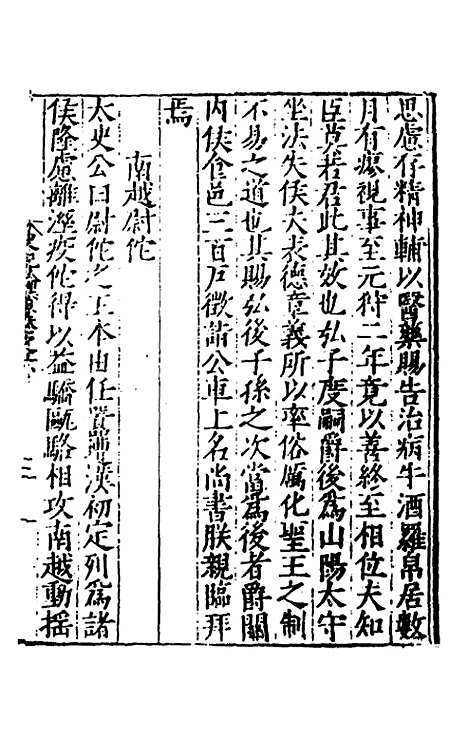 思慮存精神輔以醫藥賜告治病牛酒雜帛居數
月有瘳視事至元狩二年竟以善終至相位夫知
臣莫若君此其效也弘子度嗣爵後為山陽太守
坐法失侯夫表德章義所以率俗厲化聖王之制
不易之道也其賜弘後子孫之次當為後者爵關
內侯食邑三百戶徵詣公車上名尚書朕親臨拜
焉
南越尉佗
太史公曰尉佗之王本由任囂遭漢初定列為諸
侯隆慮離溼疫佗得以益驕甌駱相攻南越動搖